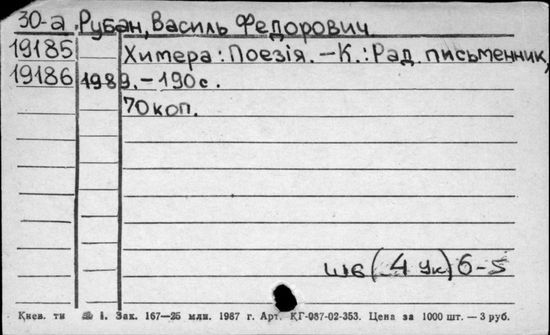 30-а Рубан, Василь Федорович
19185 Химера : Поезія. – К. : Рад. письменник,
19186 1989. – 190 с.
70 коп.
Ш6(4 Ук)6-5
Киев. ти 1. Зак. 167—25 млн. 1987 г. Арт. КГ-087-02-353. Цена за 1000 шт. — 3 руб.